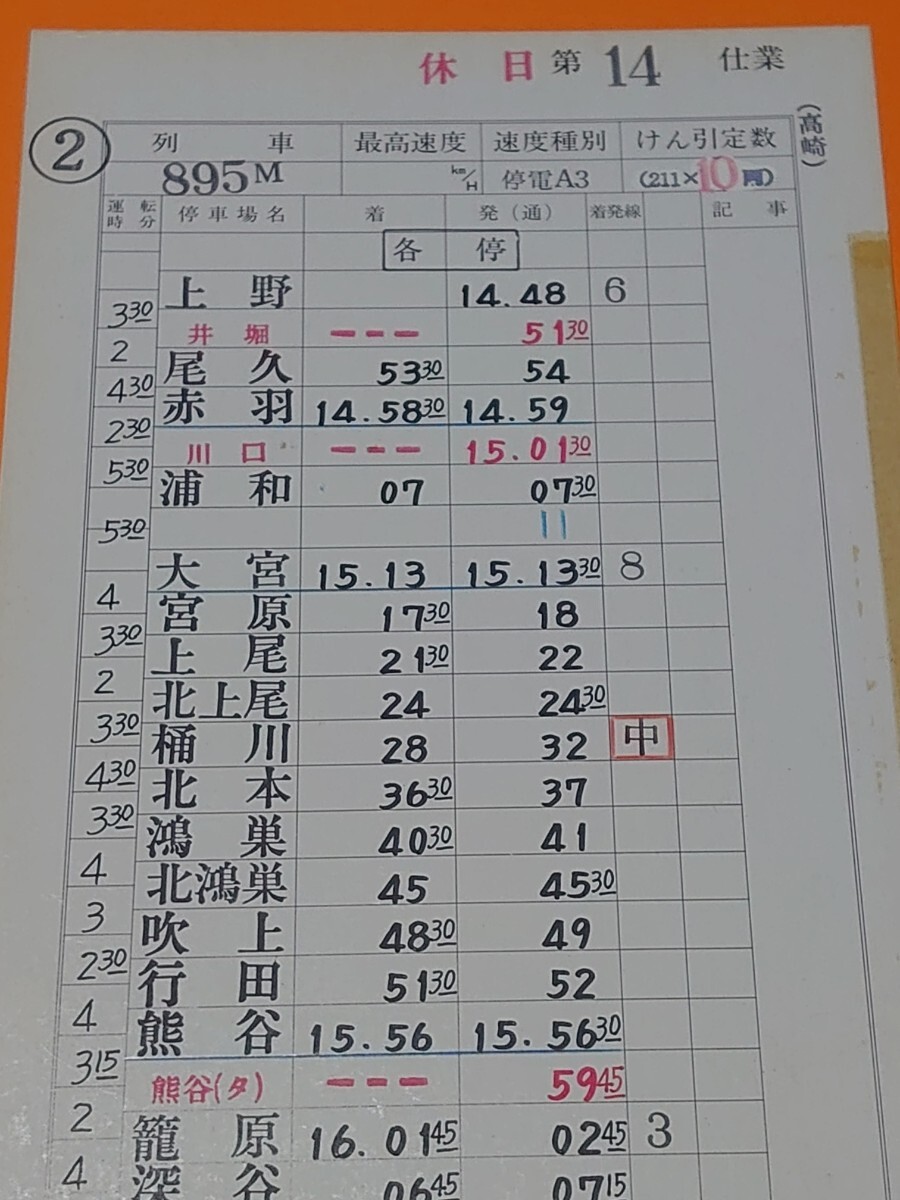 休日第14仕業
(高崎)
② 列車 最高速度 速度種別 けん引定数
895M km/H 停電A3 (211×10両)
運転時分 停車場名 着 発(通) 着発線 記事
各停
上野 14.48 6
3 30
井堀 --- 51 30
2
尾久 53 30 54
4 30
赤羽 14.58 30 14.59
2 30
川口 --- 15.01 30
5 30
浦和 07 07 30
11
5 30
大宮 15.13 15.13 30 8
4
宮原 17 30 18
3 30
上尾 21 30 22
2
北上尾 24 24 30
3 30
桶川 28 32 中
4 30
北本 36 30 37
3 30
鴻巣 40 30 41
4
北鴻巣 45 45 30
3
吹上 48 30 49
2 30
行田 51 30 52
4
熊谷 15.56 15.56 30
3 15
熊谷(タ) --- 59 45
2
籠原 16.01 45 02 45 3
4
深谷 06 45 07 15